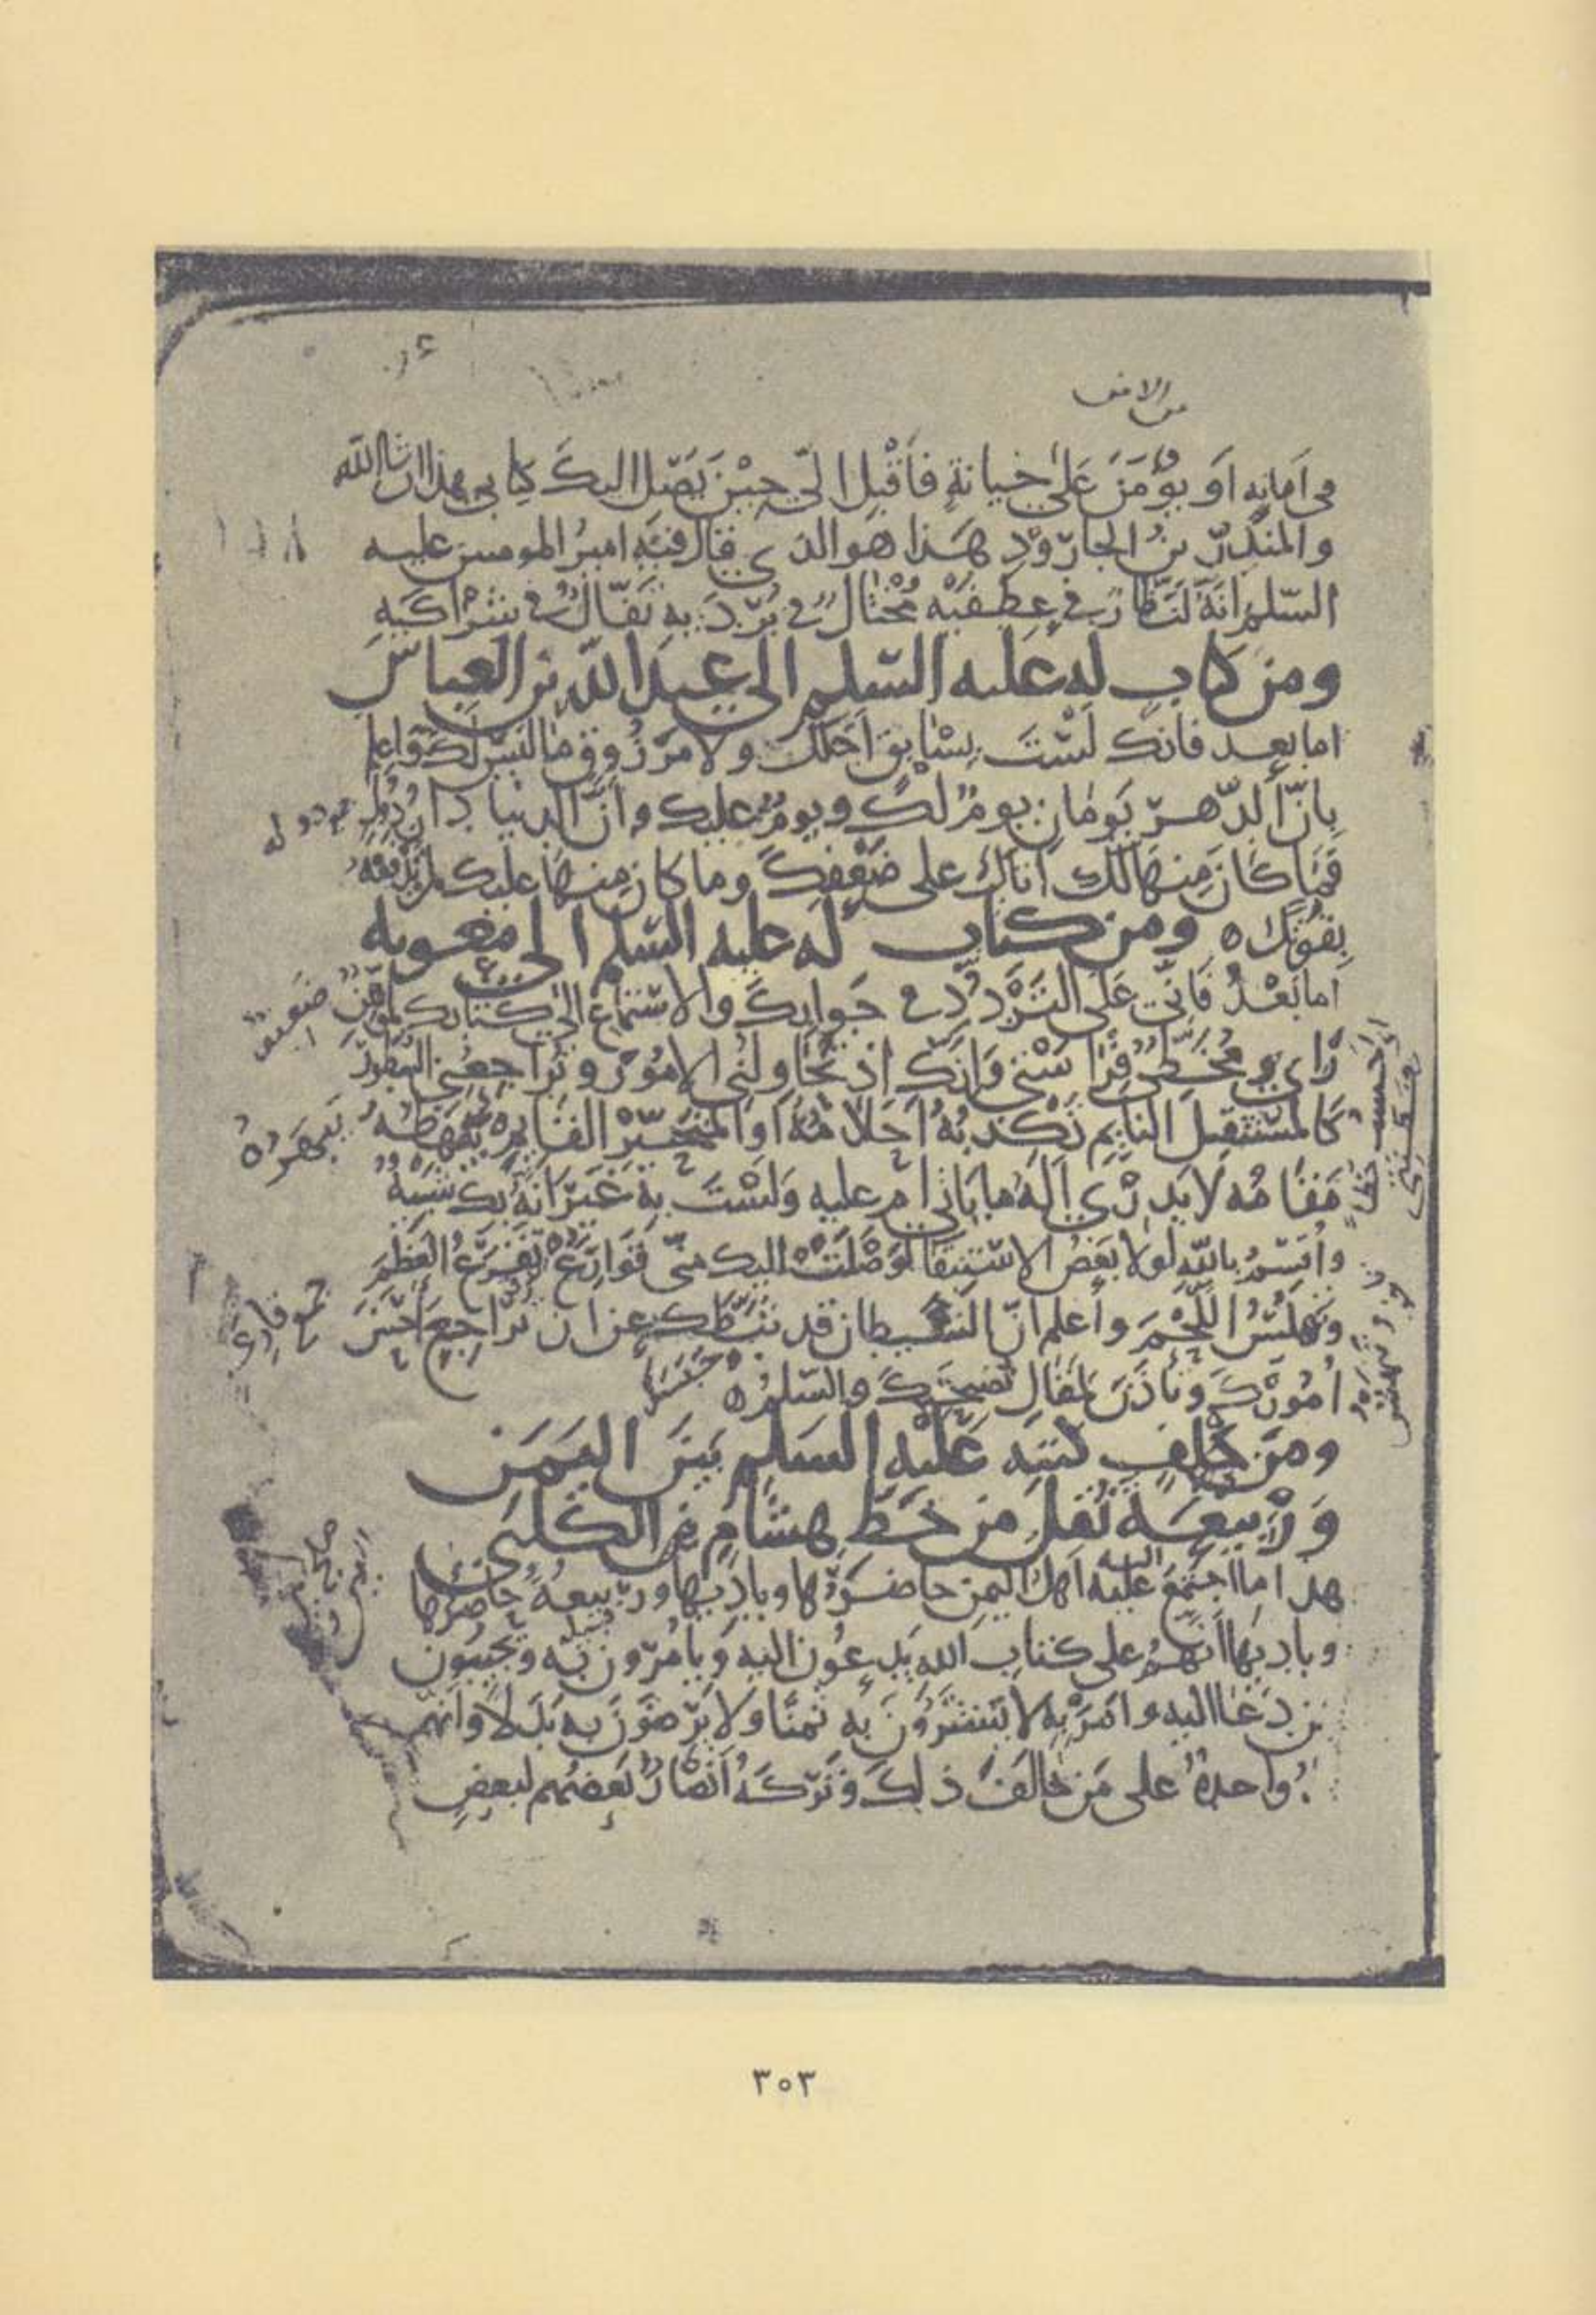 من الامر
في أمانه أو يؤمن على خيانة فأقبل إليّ حين يصل اليك كتابي هذا ان شاالله
والمنذر بن الجارود هذا هو الذي قال فيه امير المومنين عليه
السلم انه لنظار في عطفيه مختال في برديه تفال في شراكيه
ومن كتاب له عليه السلم الى عبد الله بن العباس
اما بعد فانك لست بسابق اجلك ولا مرزوق ما ليس لك واعلم
بان الدهر يومان يوم لك ويوم عليك وان الدنيا دار دول
فما كان منها لك اتاك على ضعفك وما كان منها عليك لم تدفعه
بقوتك ه ومن كتاب له عليه السلم الى معوية
اما بعد فاني على التردد في جوابك والاستماع الى كتابك لموهن
رايي ومخطي فراستي وانك اذ تحاولني الامور وتراجعني السطور
كالمستثقل النايم تكذبه احلامه او المتحير القايم يبهظه
مقامه لا يدري اله ما ياتي ام عليه ولست به غير انه بك شبيه
واقسم بالله لولا بعض الاستبقا لوصلت اليك مني قوارع تقرع العظم
وتهلس اللحم واعلم ان الشيطان قد ثبطك عن ان تراجع احسن
امورك وتاذن لمقال نصيحتك والسلم ه
ومن حلف كتبه عليه السلم بين اليمن
وربيعة نقل من خط هشام بن الكلبي
هذا ما اجتمع عليه اهل اليمن حاضرها وباديها وربيعة حاضرها
وباديها انهم على كتاب الله يدعون اليه ويامرون به ويجيبون
من دعا اليه وامر به لا يشترون به ثمنا ولا يرضون به بدلا وانهم
يد واحدة على من خالف ذلك وتركه انصار بعضهم لبعض
٣٠٣